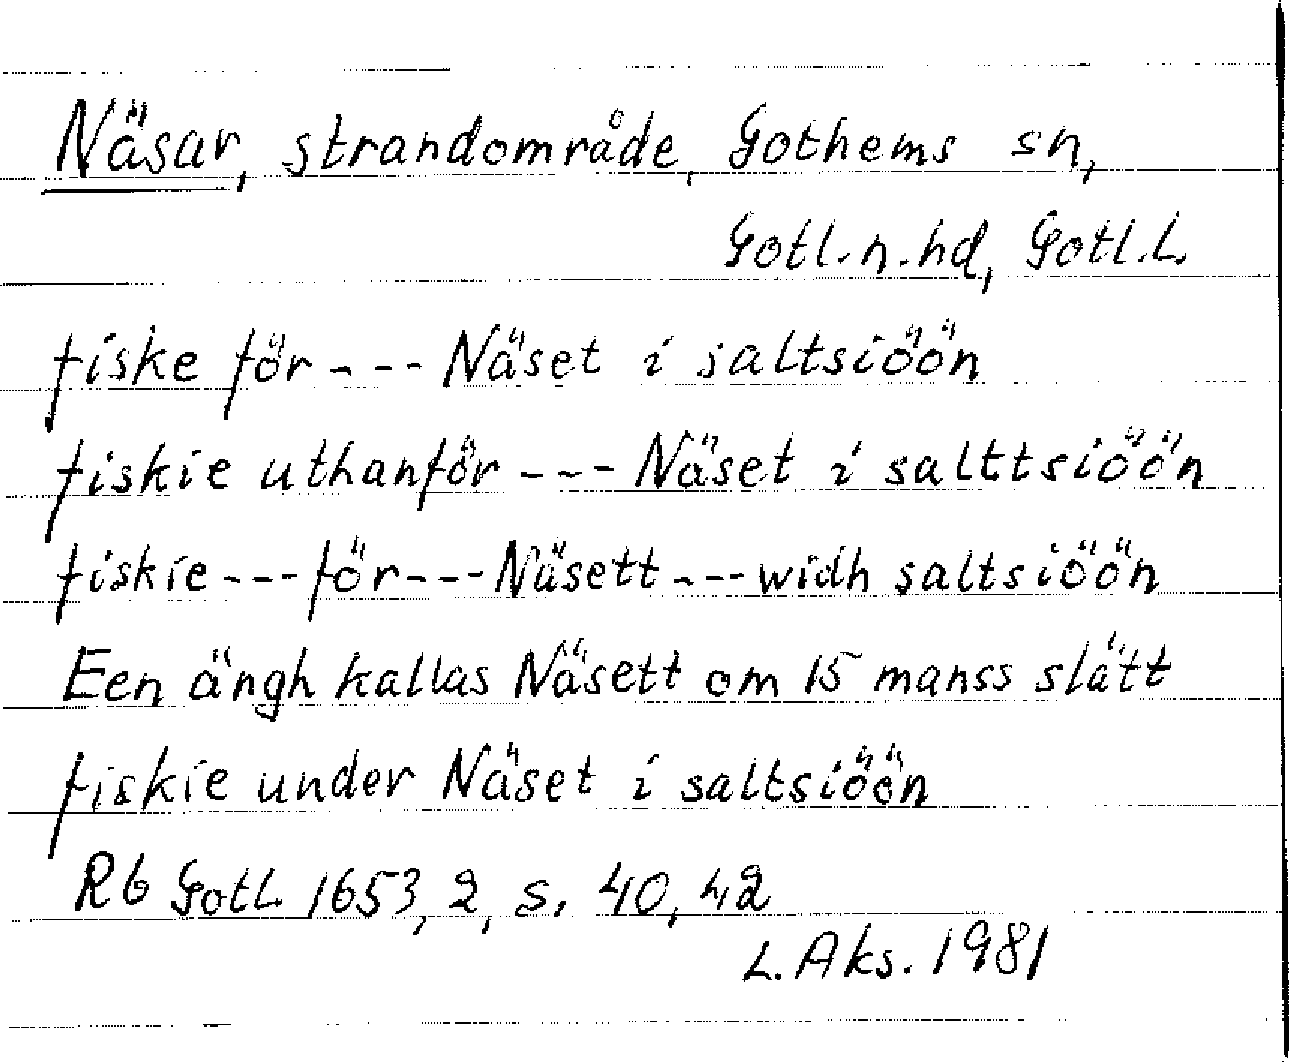 Näsar, strandområde, Gothems sn,
Gotl.n.hd, Gotl.L.
fiske för - - - Näset i saltsiöön
fiskie uthanför - - - Näset i salttsiöön
fiskie - - - för - - - Näsett - - - widh saltsiöön
Een ängh kallas Näsett om 15 manss slått
fiskie under Näset i saltsiöön
Rb Gotl. 1653, 2, s. 40, 42
L. Aks. 1981